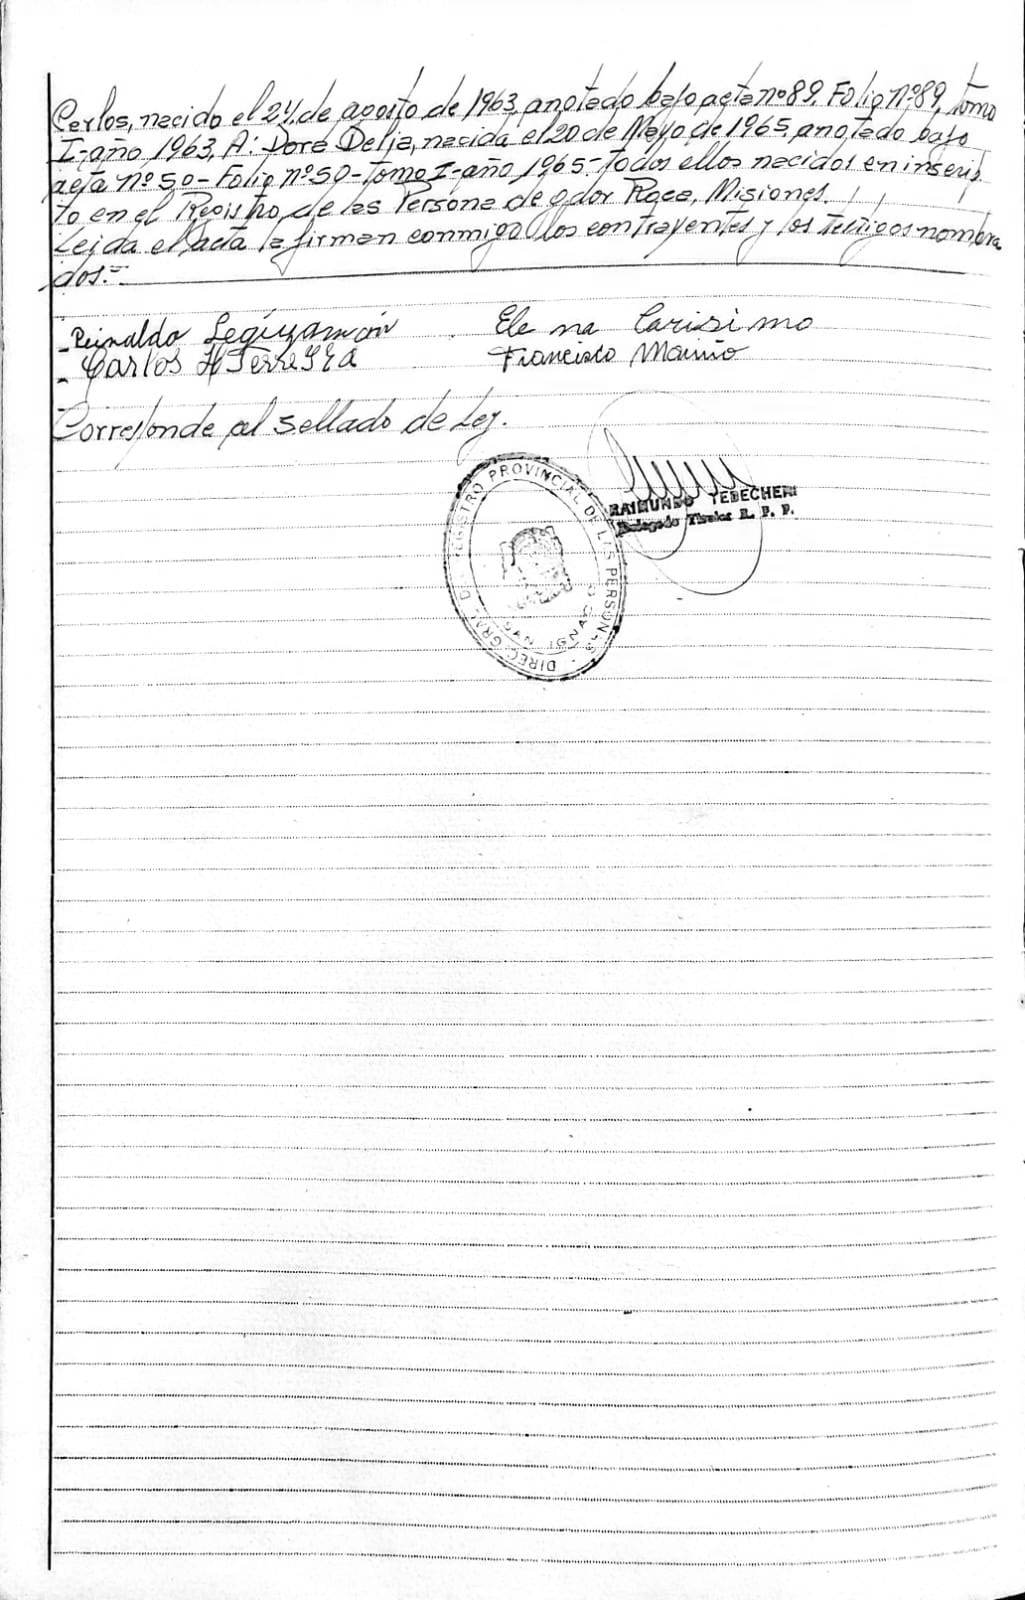 Carlos, nacido el 24, de agosto de 1963, anotado bajo acta nº 89, Folio Nº 89, tomo
I-año 1963, A: Dora Delia, nacida el 20 de Mayo de 1965, anotado bajo
acta Nº 50 - Folio nº 50 - Tomo I - año 1965 - Todos ellos nacidos en inscrip
to en el Registro de las Persona de Gdor Roca, Misiones.
Leida el acta la firman conmigo los contrayentes y los testigos nombra
dos.=
Reinaldo Leguizamón Ele na Carisi mo
Carlos H Ferreyra Francisco
Corresponde al sellado de Ley.
RAIMUNDO TEBECHERI
Delegado Titular R. P. P.
DIREC. GRAL. DEL REGISTRO PROVINCIAL DE LAS PERSONAS
SAN IGNACIO